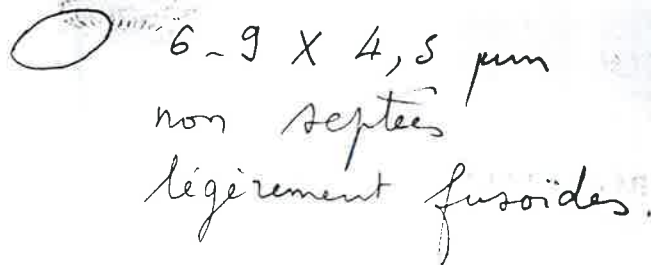 6-9 X 4,5 µm
non septées
légèrement fusoïdes.